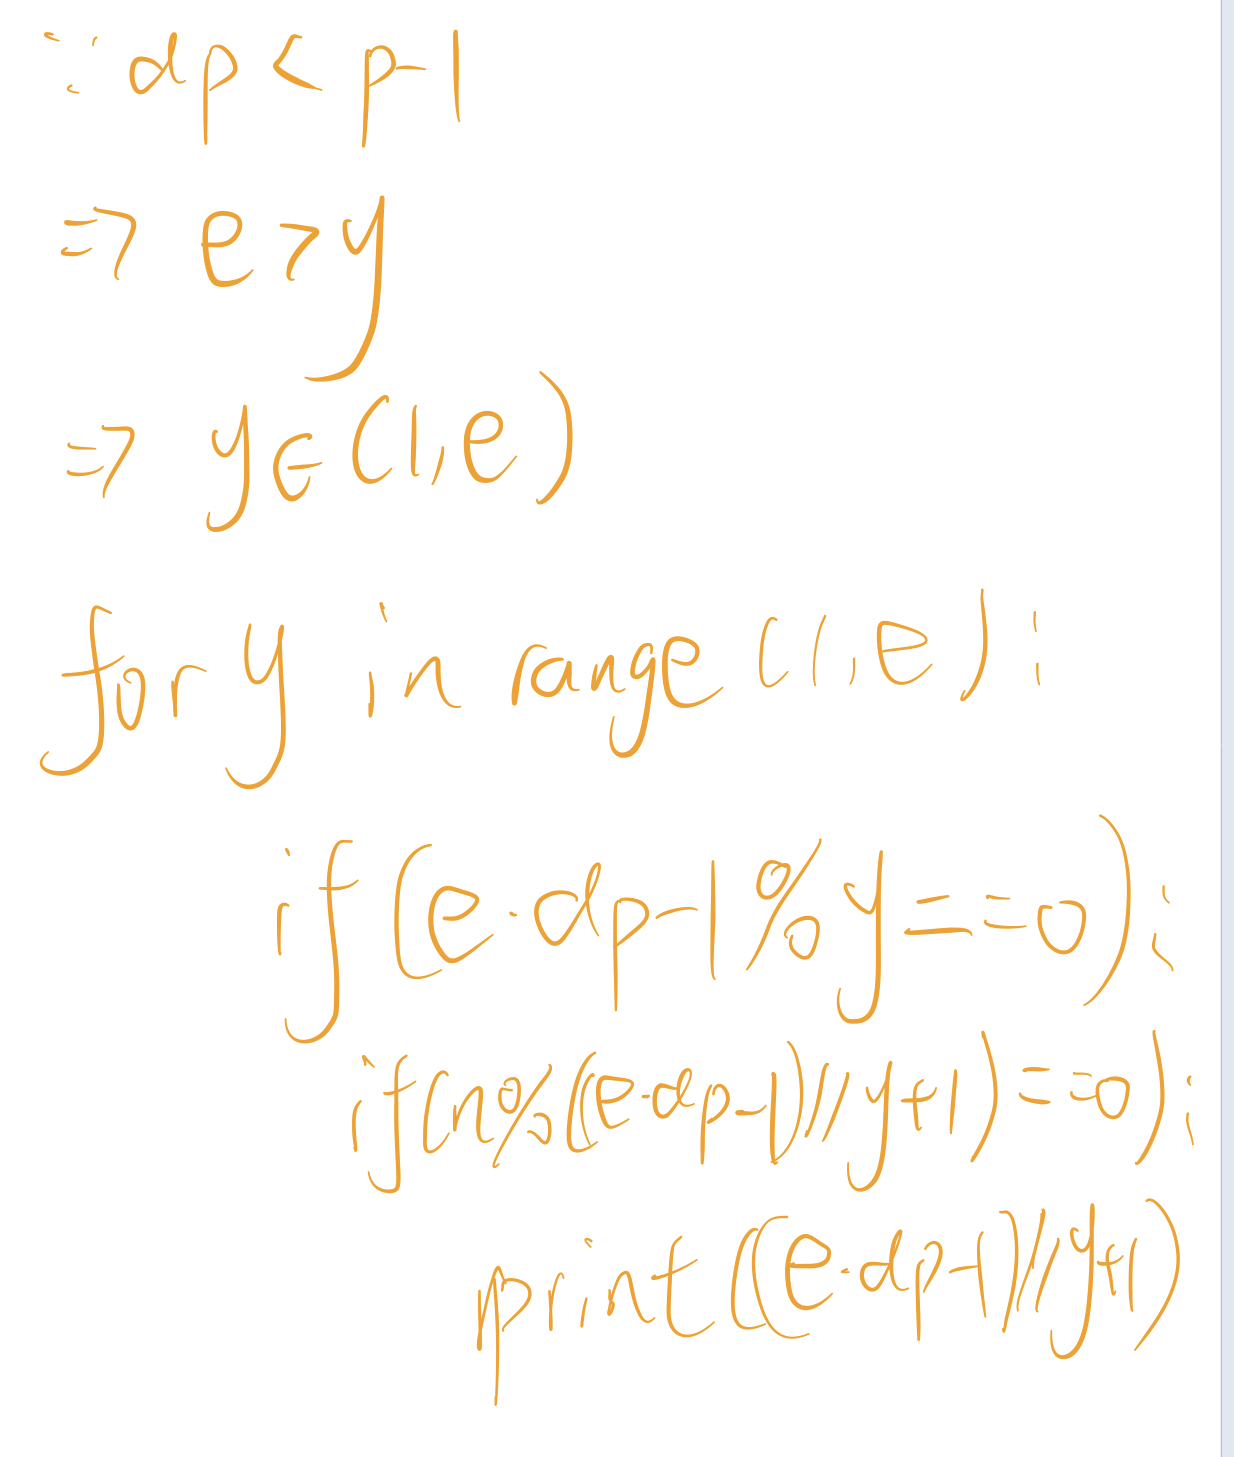 ∵ dp < p-1
=> e > y
=> y∈(1,e)
for y in range (1,e):
if(e·dp-1%y==0):
if(n%((e·dp-1)//y+1)==0):
print((e·dp-1)//y+1)